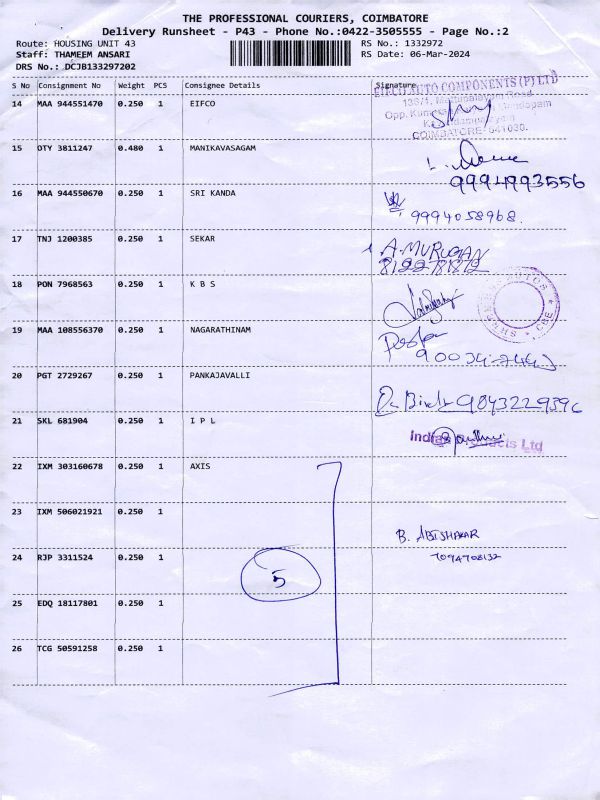 THE PROFESSIONAL COURIERS, COIMBATORE
Delivery Runsheet - P43 - Phone No.:0422-3505555 - Page No.:2
Route: HOUSING UNIT 43
RS No.: 1332972
Staff: THAMEEM ANSARI
RS Date: 06-Mar-2024
DRS No.: DCJB133297202
S No Consignment No Weight PCS Consignee Details Signature
EIFCO AUTO COMPONENTS (P) LTD
14 MAA 944551470 0.250 1 EIFCO
COIMBATORE-641030.
15 OTY 3811247 0.480 1 MANIKAVASAGAM
9994993556
16 MAA 944550670 0.250 1 SRI KANDA
9994058968.
17 TNJ 1200385 0.250 1 SEKAR A.MURUGAN
18 PON 7968563 0.250 1 K B S
19 MAA 108556370 0.250 1 NAGARATHINAM
20 PGT 2729267 0.250 1 PANKAJAVALLI
9843229396
21 SKL 681904 0.250 1 I P L
Products Ltd
22 IXM 303160678 0.250 1 AXIS
23 IXM 506021921 0.250 1
B. ABISHAKAR
24 RJP 3311524 0.250 1 5 7094708132
25 EDQ 18117801 0.250 1
26 TCG 50591258 0.250 1